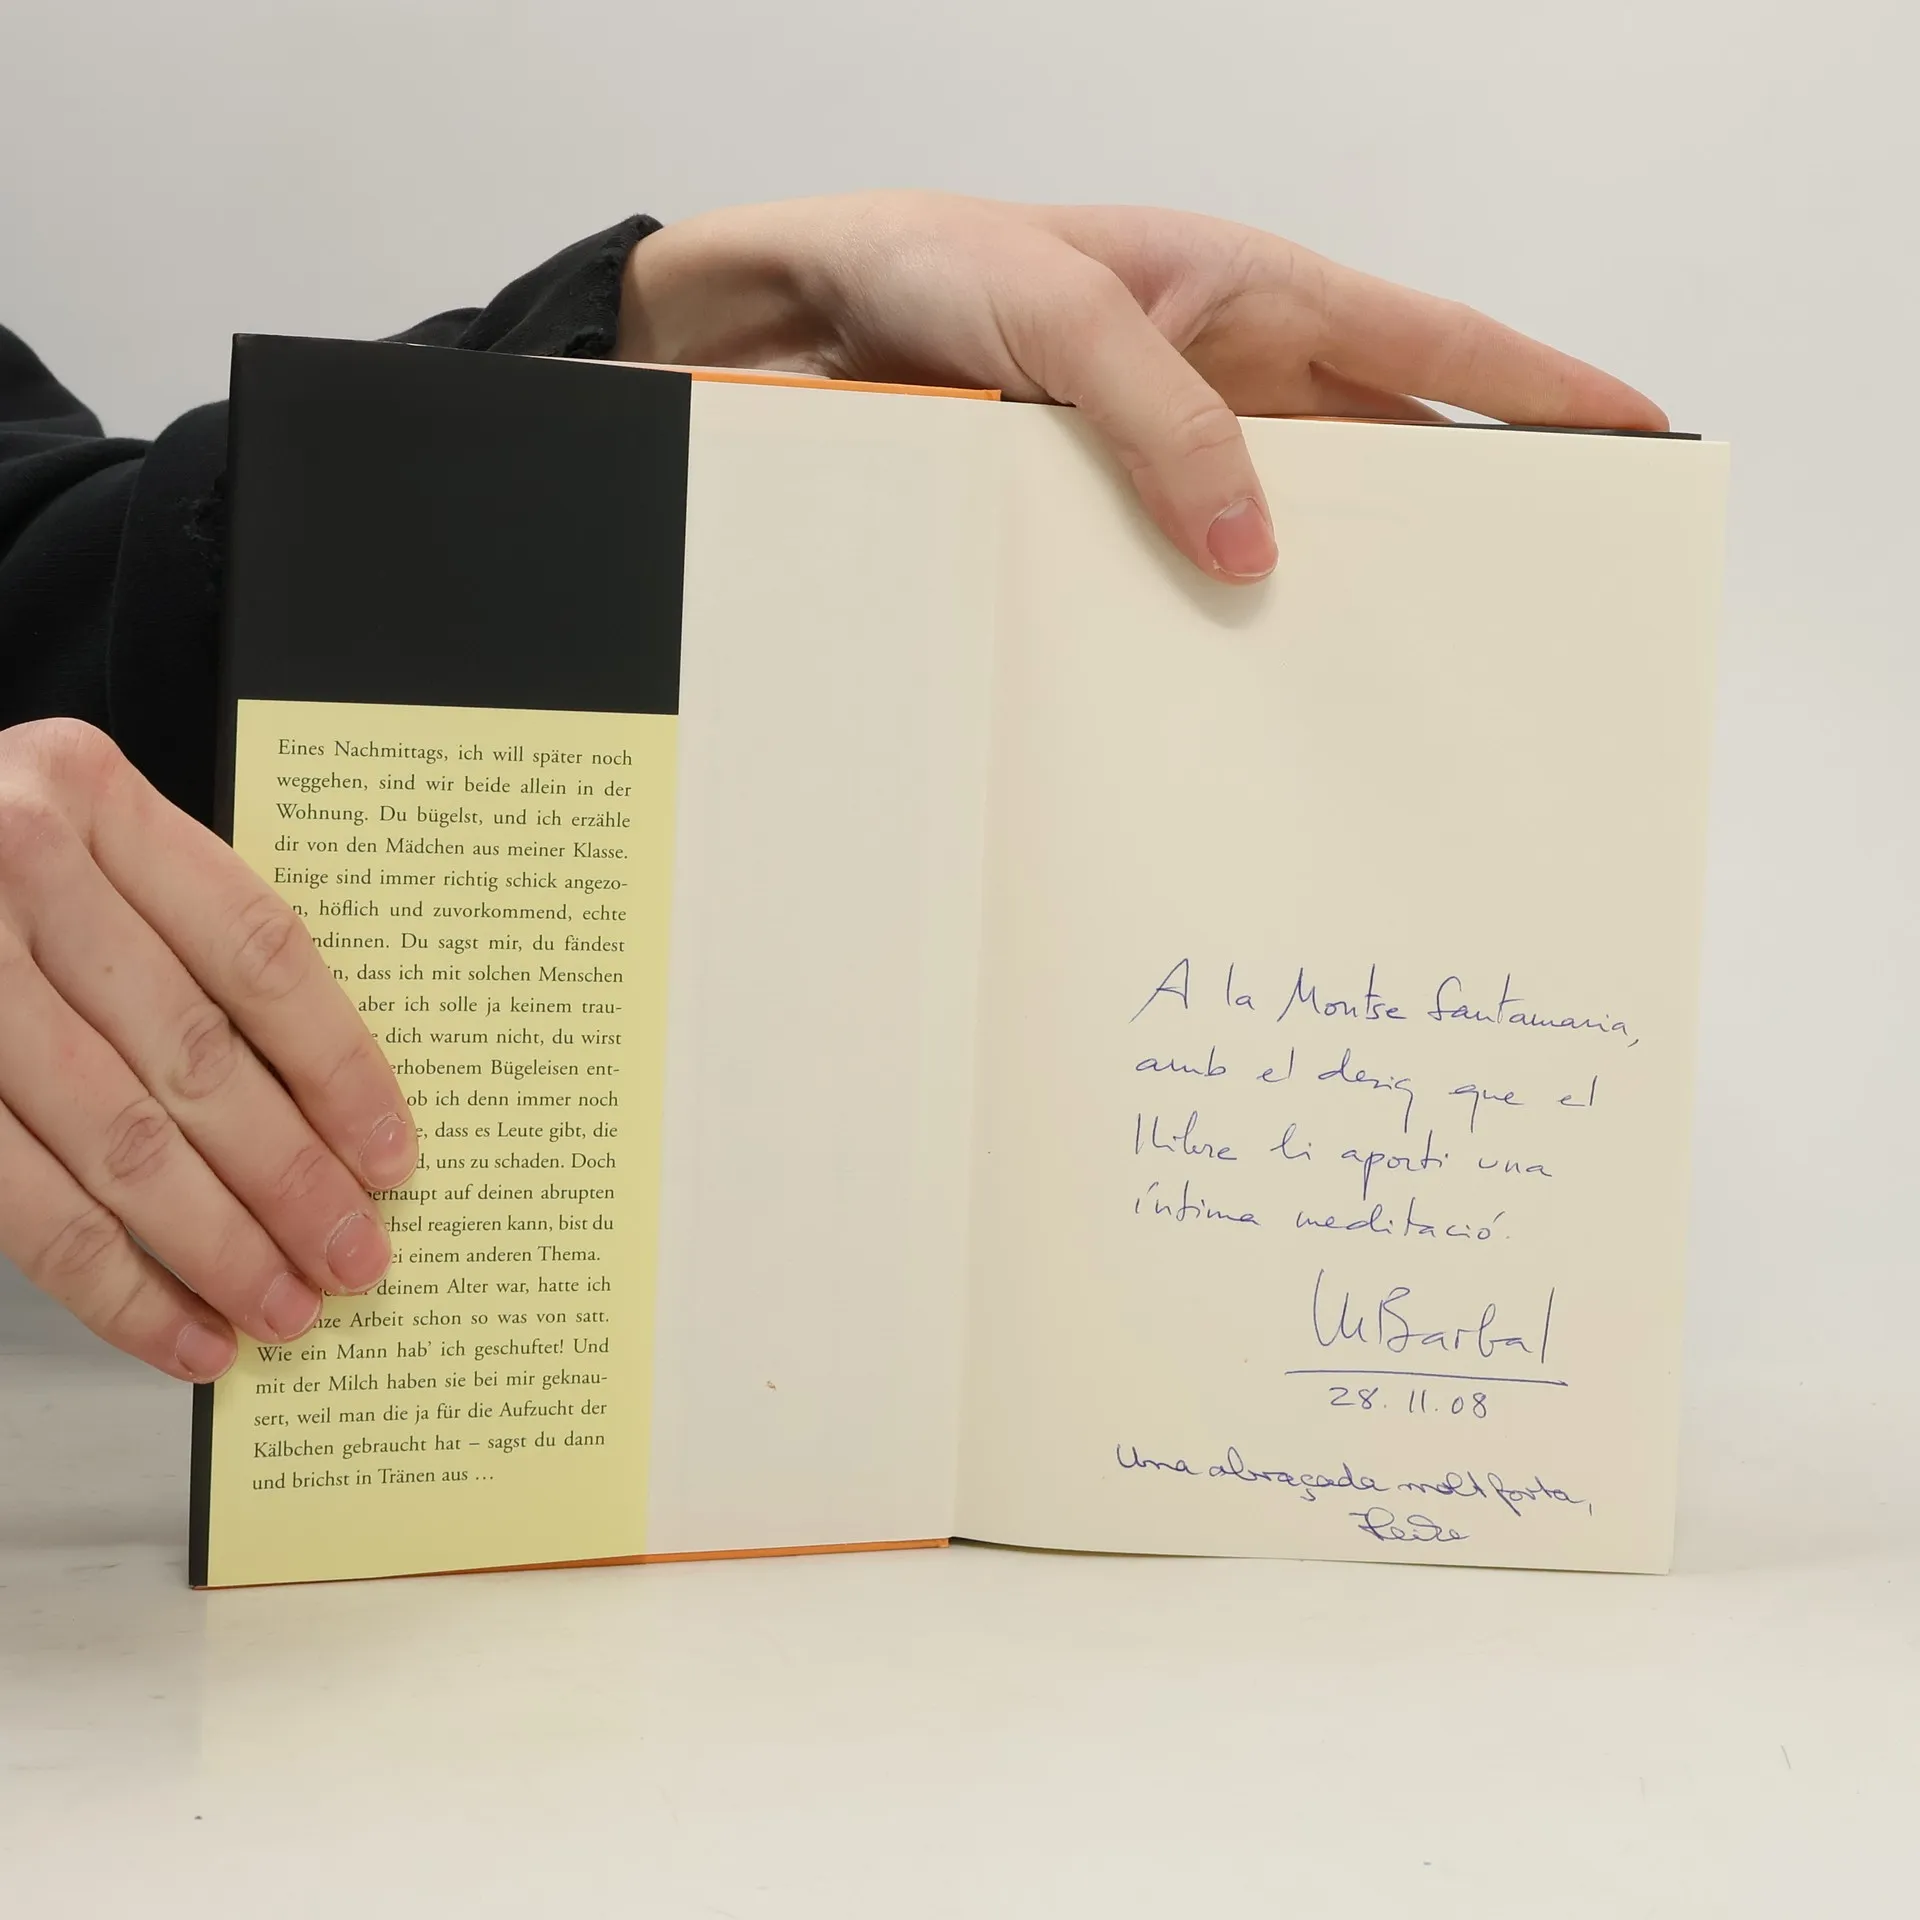 Eines Nachmittags, ich will später noch
weggehen, sind wir beide allein in der
Wohnung. Du bügelst, und ich erzähle
dir von den Mädchen aus meiner Klasse.
Einige sind immer richtig schick angezo-
n, höflich und zuvorkommend, echte
ndinnen. Du sagst mir, du fändest
in, dass ich mit solchen Menschen
aber ich solle ja keinem trau-
e dich warum nicht, du wirst
erhobenem Bügeleisen ent-
ob ich denn immer noch
e, dass es Leute gibt, die
d, uns zu schaden. Doch
berhaupt auf deinen abrupten
chsel reagieren kann, bist du
ei einem anderen Thema.
deinem Alter war, hatte ich
nze Arbeit schon so was von satt.
Wie ein Mann hab’ ich geschuftet! Und
mit der Milch haben sie bei mir geknau-
sert, weil man die ja für die Aufzucht der
Kälbchen gebraucht hat – sagst du dann
und brichst in Tränen aus …
A la Montse Santamaria,
amb el desig que el
llibre li aporti una
íntima meditació.
M Barbal
28.11.08
Una abraçada molt forta,
Heike